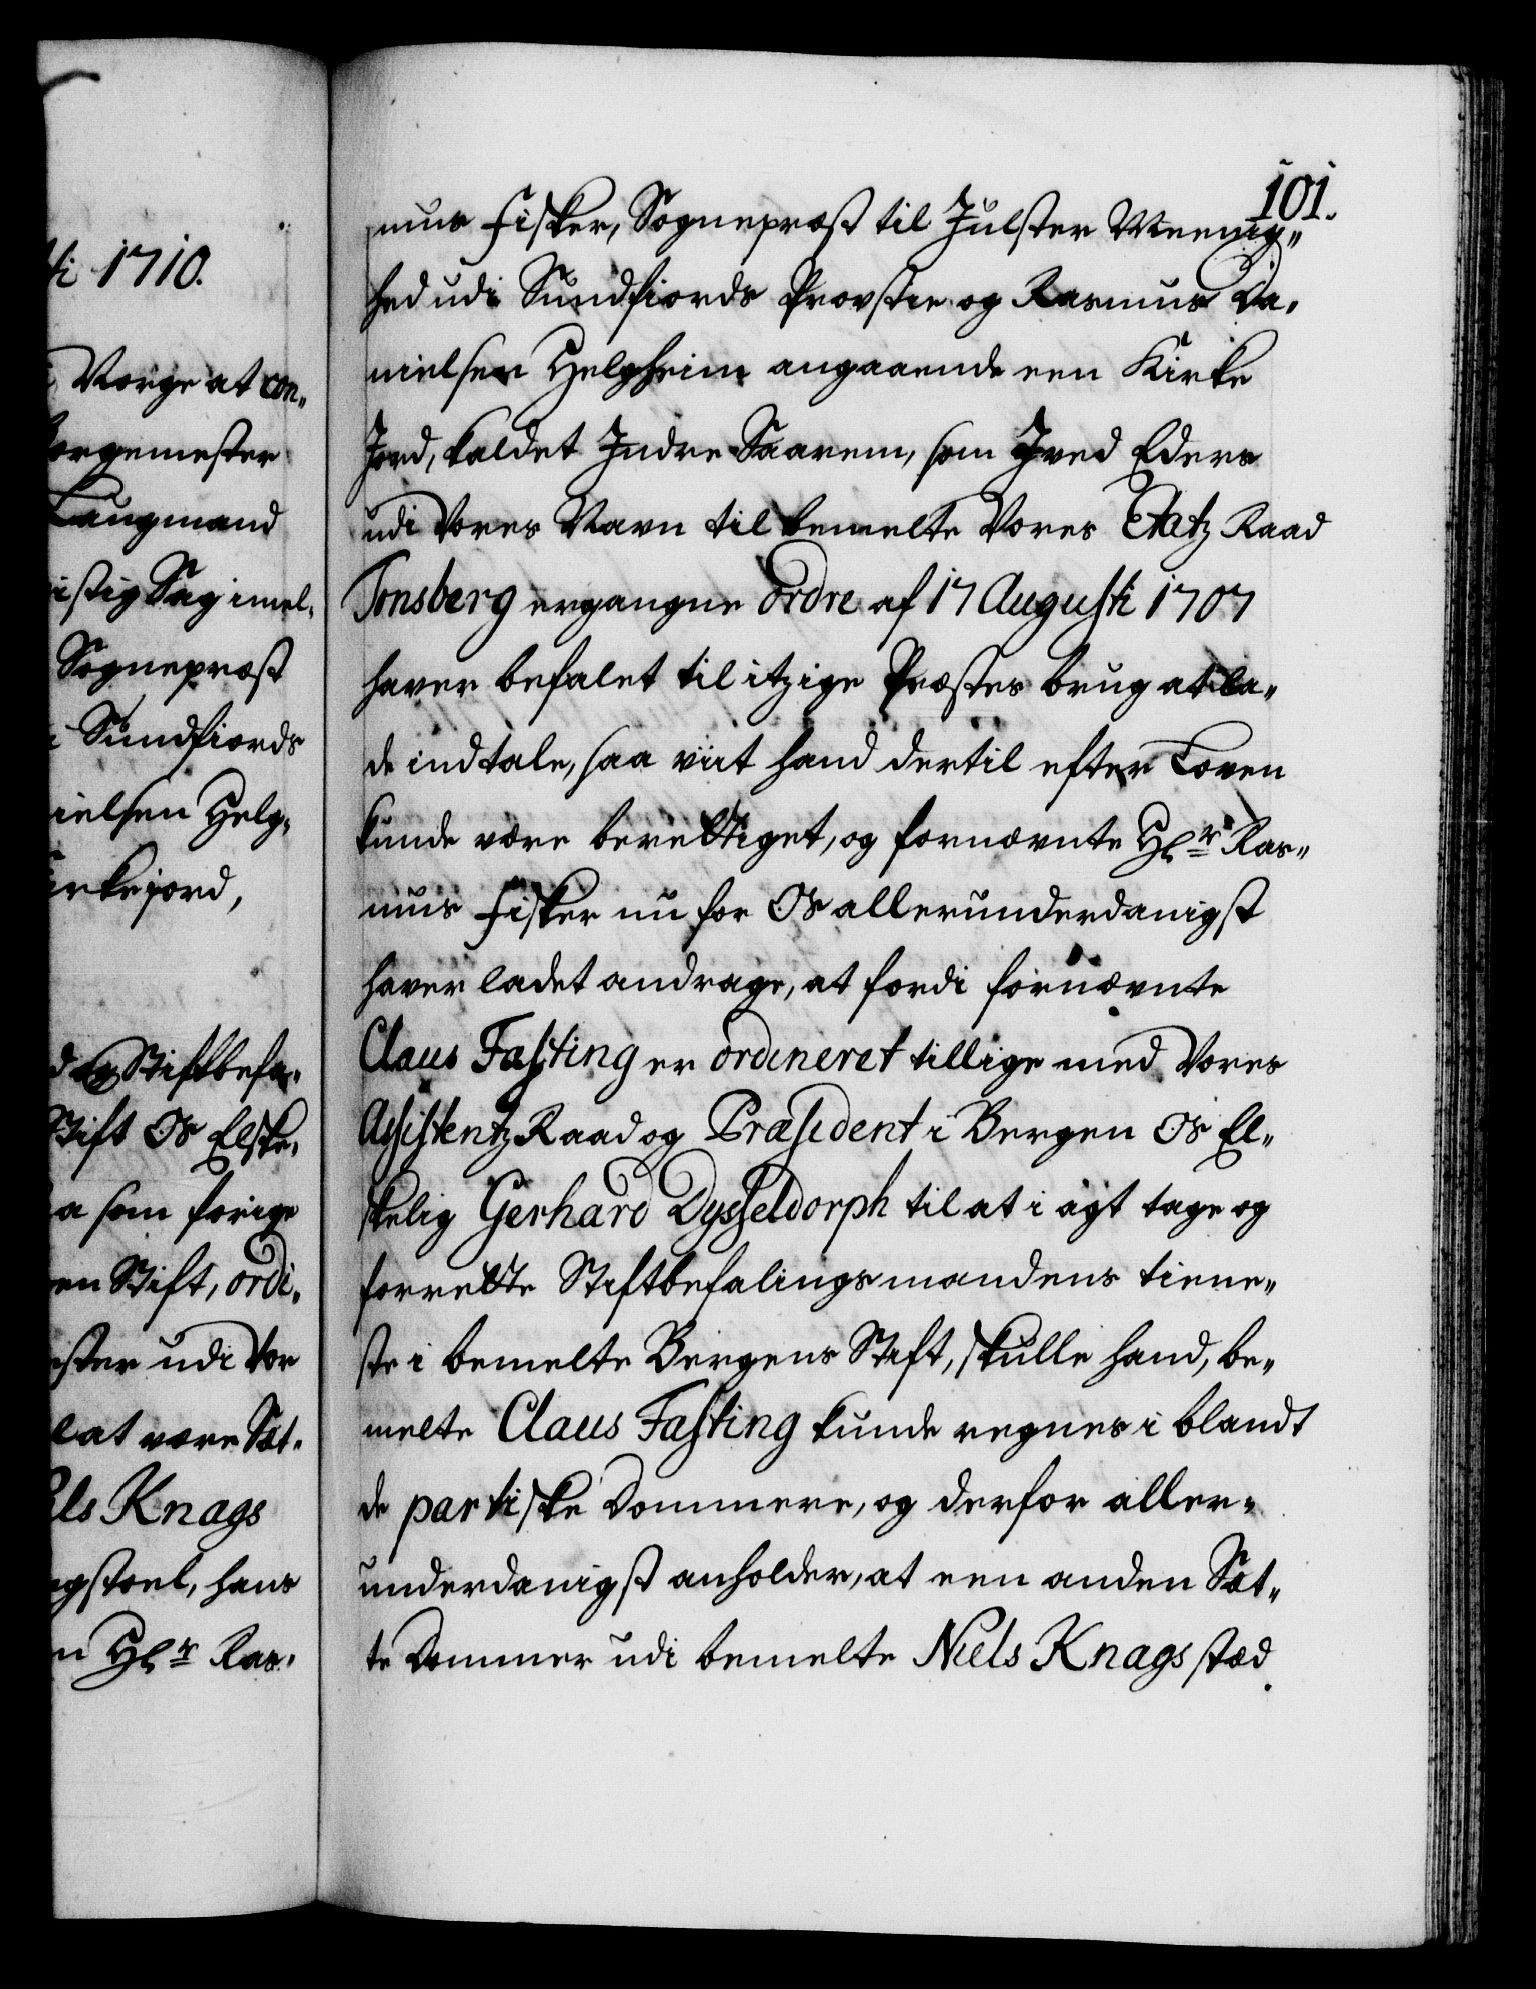 ti 1710.
Norge at con„
orgemester
Laugmand
istig Sag imel„
Sognepræst
Sundfiords
ielsen Helg„
irkejord,
d og Stiftbefa„
Stift Os Elske„
a som forige
en Stift, ordi„
ster udi Vor
lat være Sæt„
els Knags
gstoel, hans
n Hl<sup>r</sup> Ras„
101.
mus Fisker, Sognepræst til Julster Meenig„
hed udi Sundfiords Provstie og Rasmus Da„
nielsen Helgheim angaaende een Kirke
Jord, kaldet Indre Saarem, som I ved Eders
udi Vores Navn til bemelte Vores Etatz Raad
Tonsberg ergangne ordre af 17 Augusti 1707
haver befalet til itzige Præstes brug at la„
de indtale, saa viit hand dertil efter Loven
kunde være berettiget, og fornævnte Hl<sup>r</sup> Ras„
mus Fisker nu for Os allerunderdanigst
haver ladet andrage, at fordi fornævnte
Claus Fasting er ordineret tillige med Vores
Assistentz Raad og Præsident i Bergen Os El„
skelig Gerhard Dysseldorph til at i agt tage og
forrette Stiftbefalingsmandens tiene„
ste i bemelte Bergens Stift, skulle hand, be„
melte Claus Fasting kunde regnes i blandt
de partiske Dommere, og derfor aller„
underdanigst anholder, at een anden Sæt„
te Dommer udi bemelte Niels Knags stæd